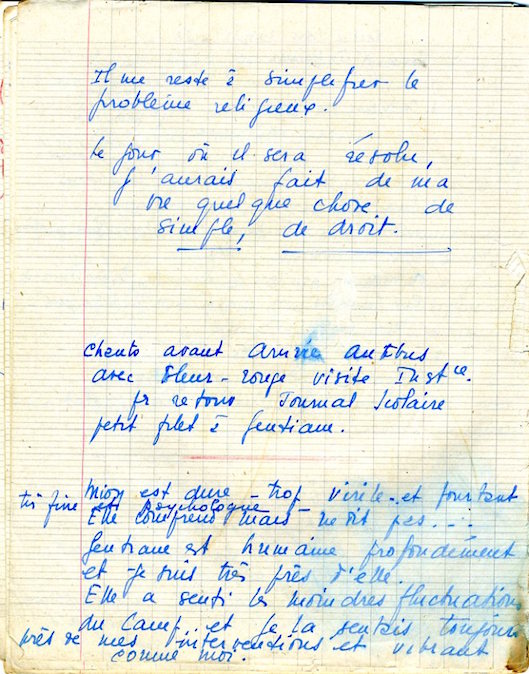 Il me reste à simplifier le
problème religieux.
Le jour où il sera résolu,
j'aurais fait de ma
vie quelque chose de
simple, de droit.
Chants avant arrivée autobus
avec Fleur-rouge visite Inst^ce.
pr retour Journal Scolaire
petit filet à Gentiane.
Miou est dure - trop virile et pourtant
très fine et psychologue -
Elle comprend mais ne dit pas...
Gentiane est humaine profondément
et je suis très près d'elle.
Elle a senti les moindres fluctuations
du Camp et je la sentais toujours
près de mes interventions et vibrant
comme moi.